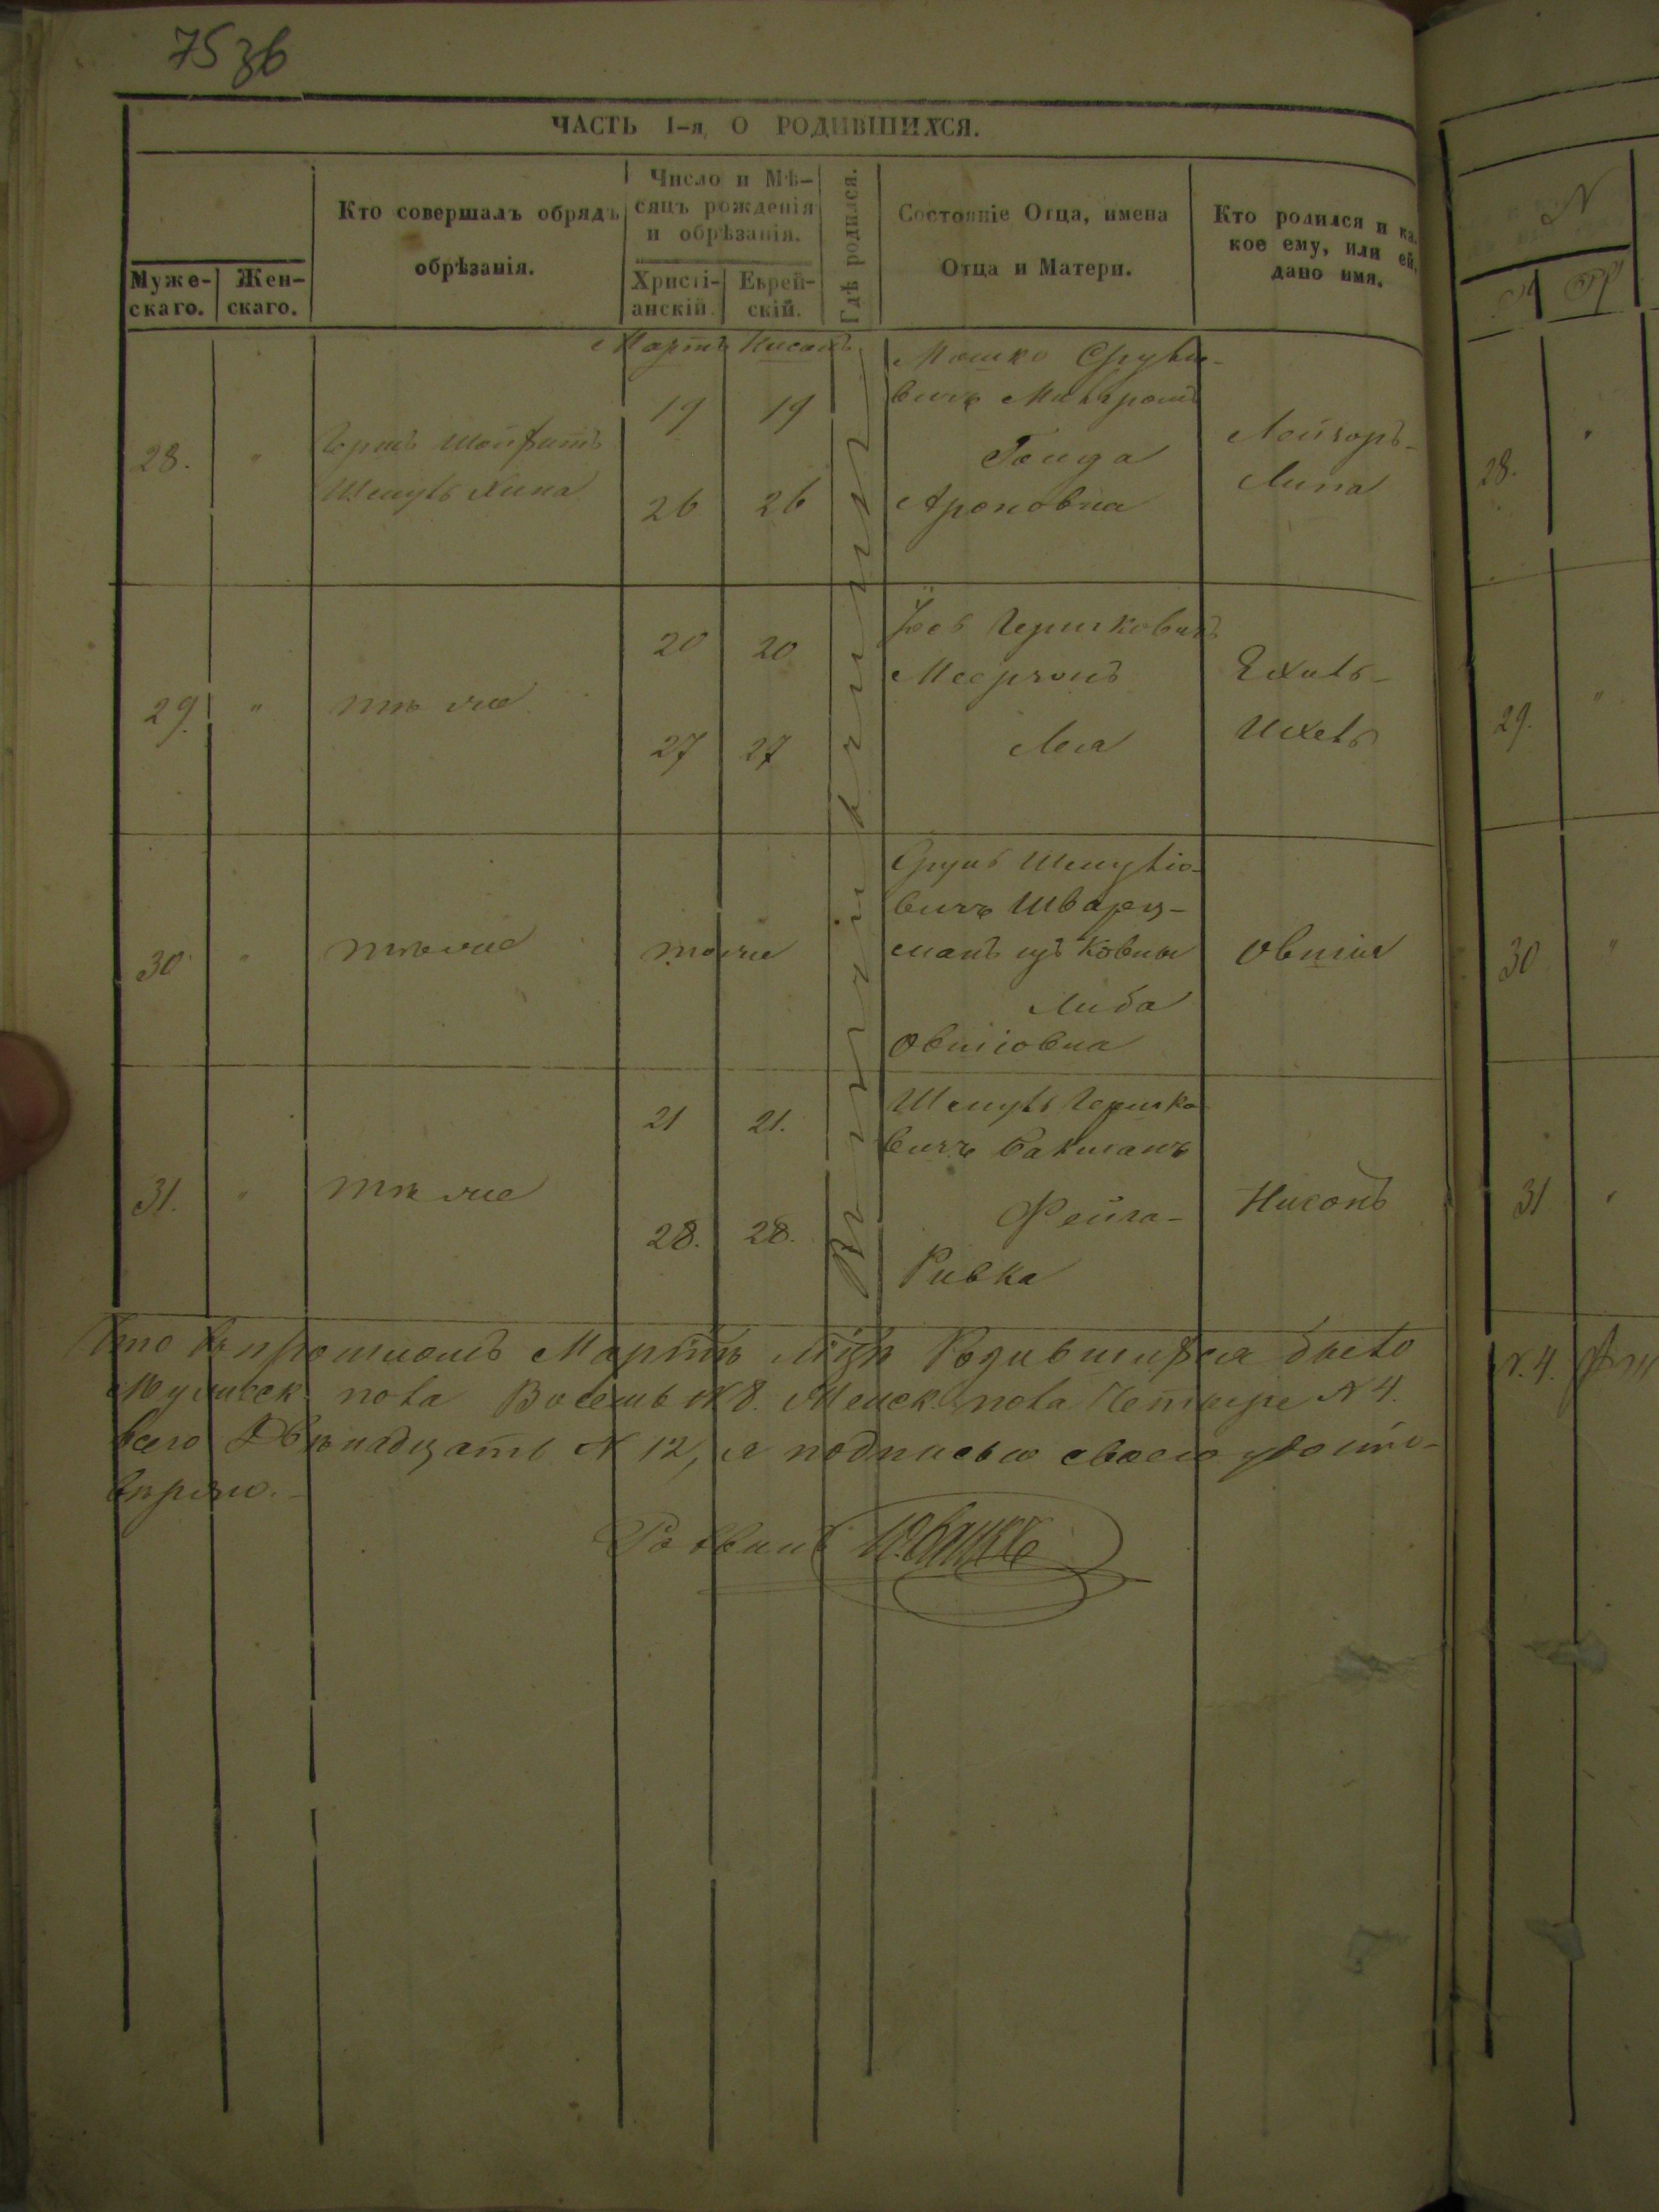 75 зв
ЧАСТЬ I-я, О РОДИВШИХСЯ.
Муже-
скаго.
Жен-
скаго.
Кто совершалъ обрядъ
обрѣзанія.
Число и Мѣ-
сяцъ рожденія
и обрѣзанія.
Христі-
анскій.
Еврей-
скій.
Гдѣ родился.
Состояніе Отца, имена
Отца и Матери.
Кто родился и ка-
кое ему, или ей,
дано имя.
Мартъ Нисанъ
28. "
Шмуль
19 19
26 26
Мошко Сруле-
вичъ
Ароновна
Лейзоръ-
Липа
29. "
тѣ же
20 20
27 27
Гершковичъ
Лея
Ехиль-
Ихель
30. "
тѣ же
тоже
Сруль Шмуліо-
вичъ Шварц-
манъ изъ Ковны
Либа
Овшіовна
Овшія
31. "
тѣ же
21 21.
28. 28.
Шмуль Гершко
вичъ Бакманъ
Фейга-
Ривка
Нисонъ
Что въ прошломъ Мартѣ м-цѣ Родившихся было
Мужеск. пола Восемь N 8. Женск. пола Четыре N 4.
всего Двѣнадцать N 12, я подписью своею удосто-
вѣряю.-
Раввинъ
N
28. "
29. "
30 "
31 "
N. 4.